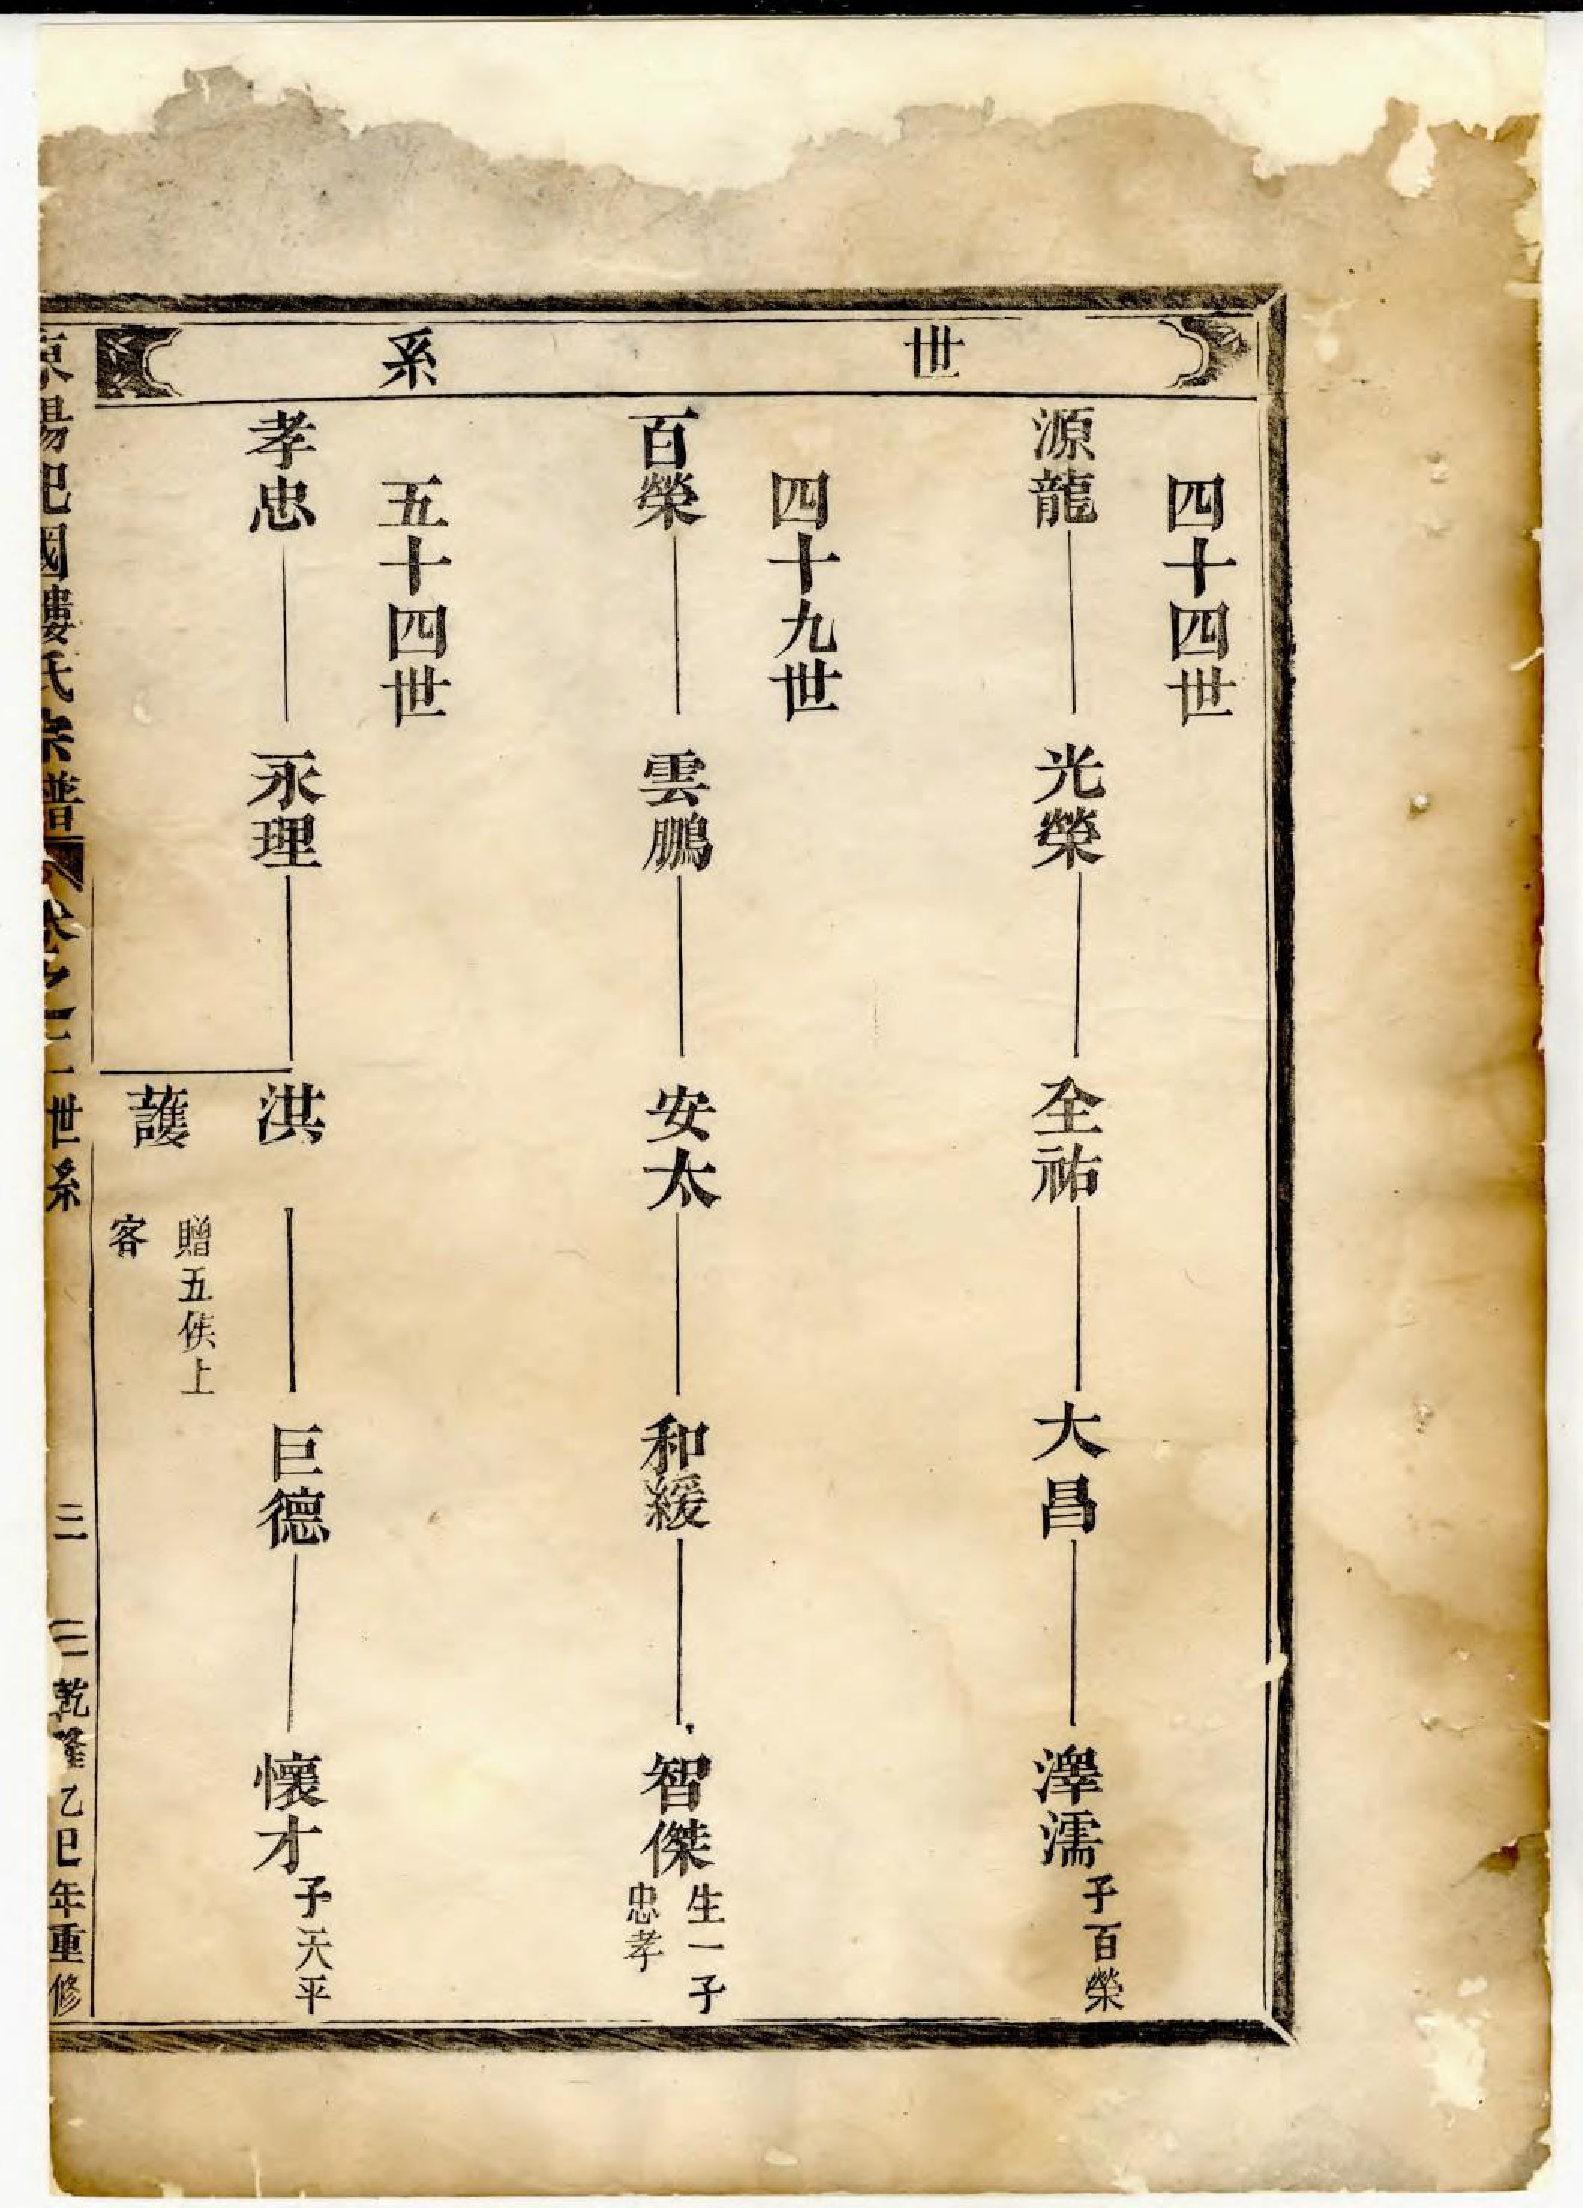 世系
四十四世
源龍 光榮 全祐 大昌 澤濡 子百榮
四十九世
百榮 雲鵬 安太 和緩 智傑 生一子
忠孝
五十四世
孝忠 永理 洪 巨德 懷才 子天平
護 贈五侯上
客
東陽杞國樓氏宗譜 世系 三 乾隆乙巳年重修